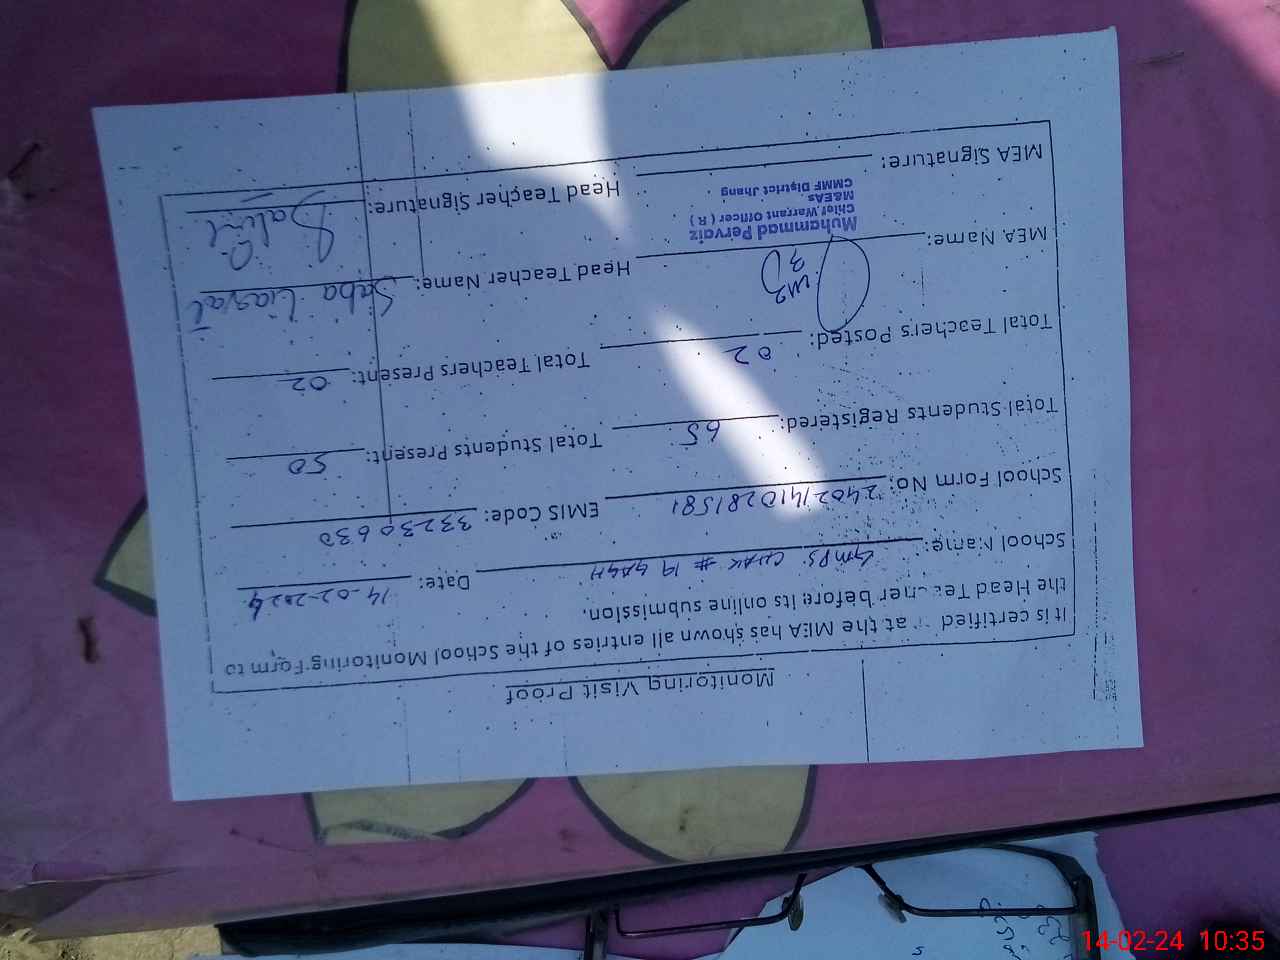 Monitoring Visit Proof
It is certified that the MEA has shown all entries of the School Monitoring Form to
the Head Teacher before its online submission.
School Name: GMPS CHAK # 19 GAGH Date: 14-02-2024
School Form No: 24021410281581 EMIS Code: 33230630
Total Students Registered: 65 Total Students Present: 50
Total Teachers Posted: 02 Total Teachers Present: 02
MEA Name: Head Teacher Name: Saba Liaqat
Muhammad Pervaiz
Chief Warrant Officer ( R )
M&EAs
CMMF District Jhang
MEA Signature: Head Teacher Signature:
14-02-24 10:35